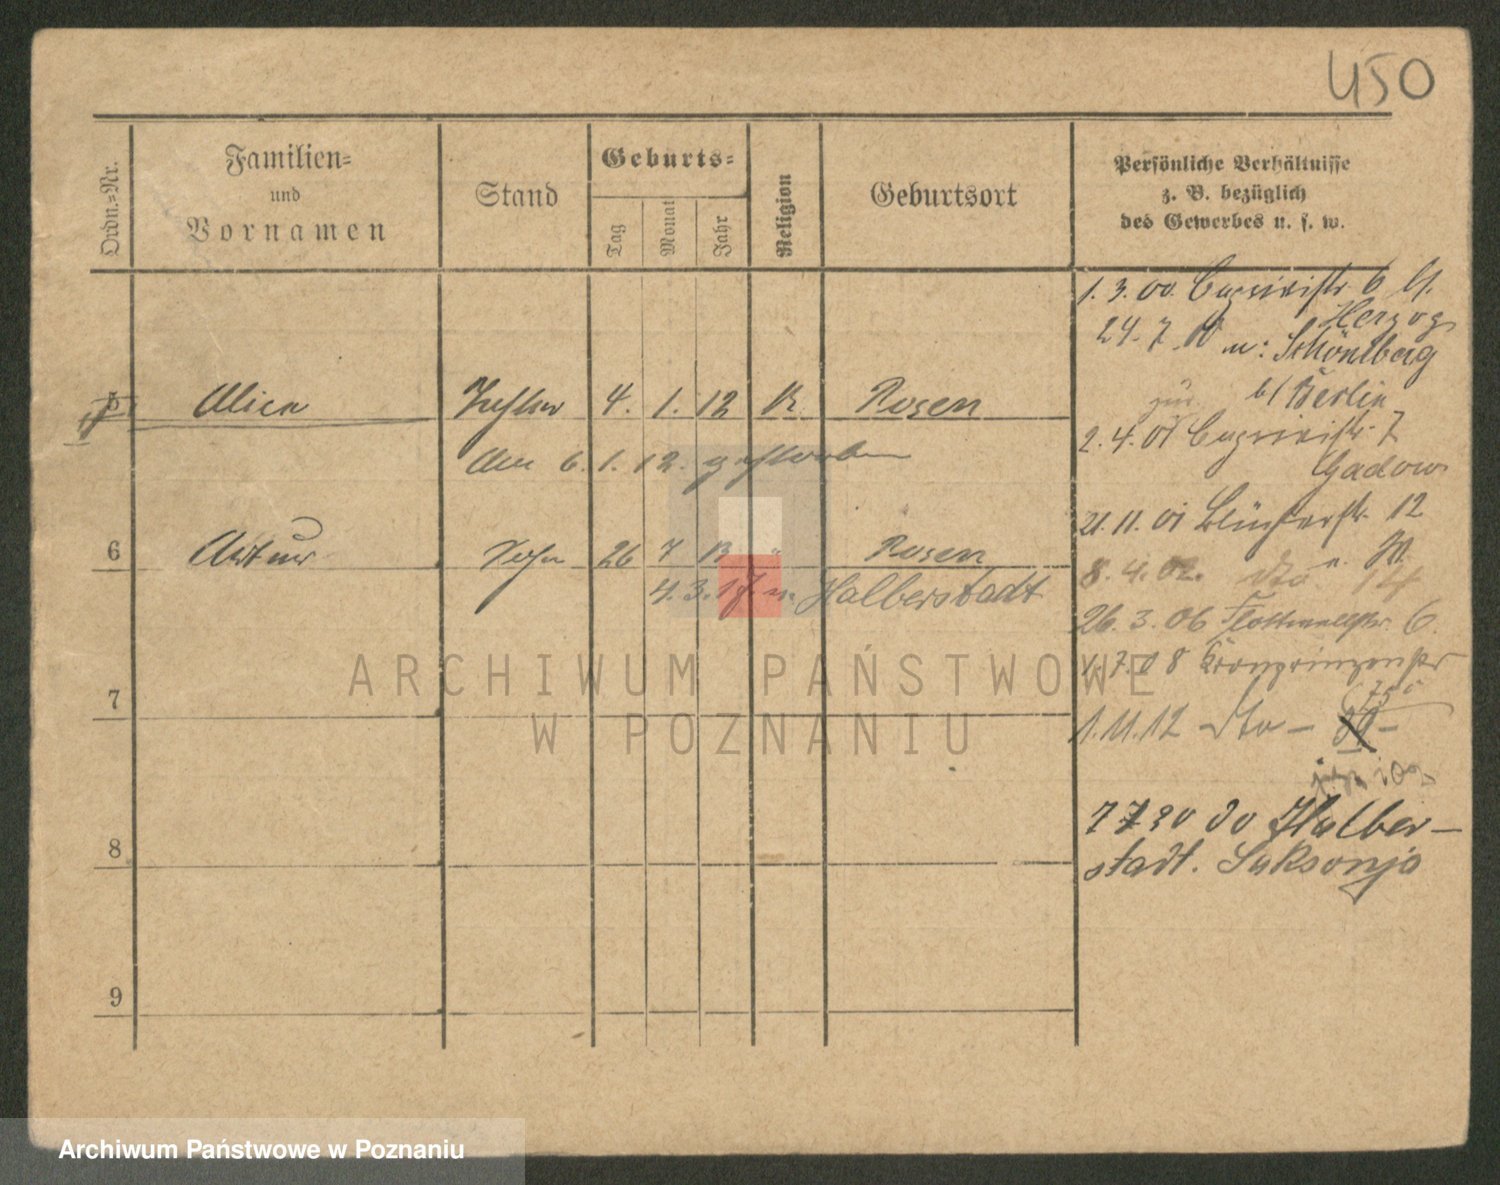 450
Ordn.=Nr.
Familien=
und
Vornamen
Stand
Geburts=
Tag
Monat
Jahr
Religion
Geburtsort
Persönliche Verhältnisse
z. B. bezüglich
des Gewerbes u. s. w.
1. 3. 00. 6
Herzog
24. 7. 00 n: Schönlberg
b/ Berlin
5 Alice Tochter 4. 1. 12 K. Posen
2. 4. 01 7
Gadow
Am 6. 1. 12. gestorben
21. 11. 01 Blücherstr. 12
6 Artur Sohn 26 7 13 " Posen
8. 4. 02. dto 14
4. 3. 17. n. Halberstadt
26. 3. 06 Flottwellstr. 6.
1. 7. 08 Kronprinzenstr
75
7
1. 11. 12 dto – –
7 7 20 do Halber–
8
stadt. Saksonja
9
ARCHIWUM PAŃSTWOWE
W POZNANIU
Archiwum Państwowe w Poznaniu